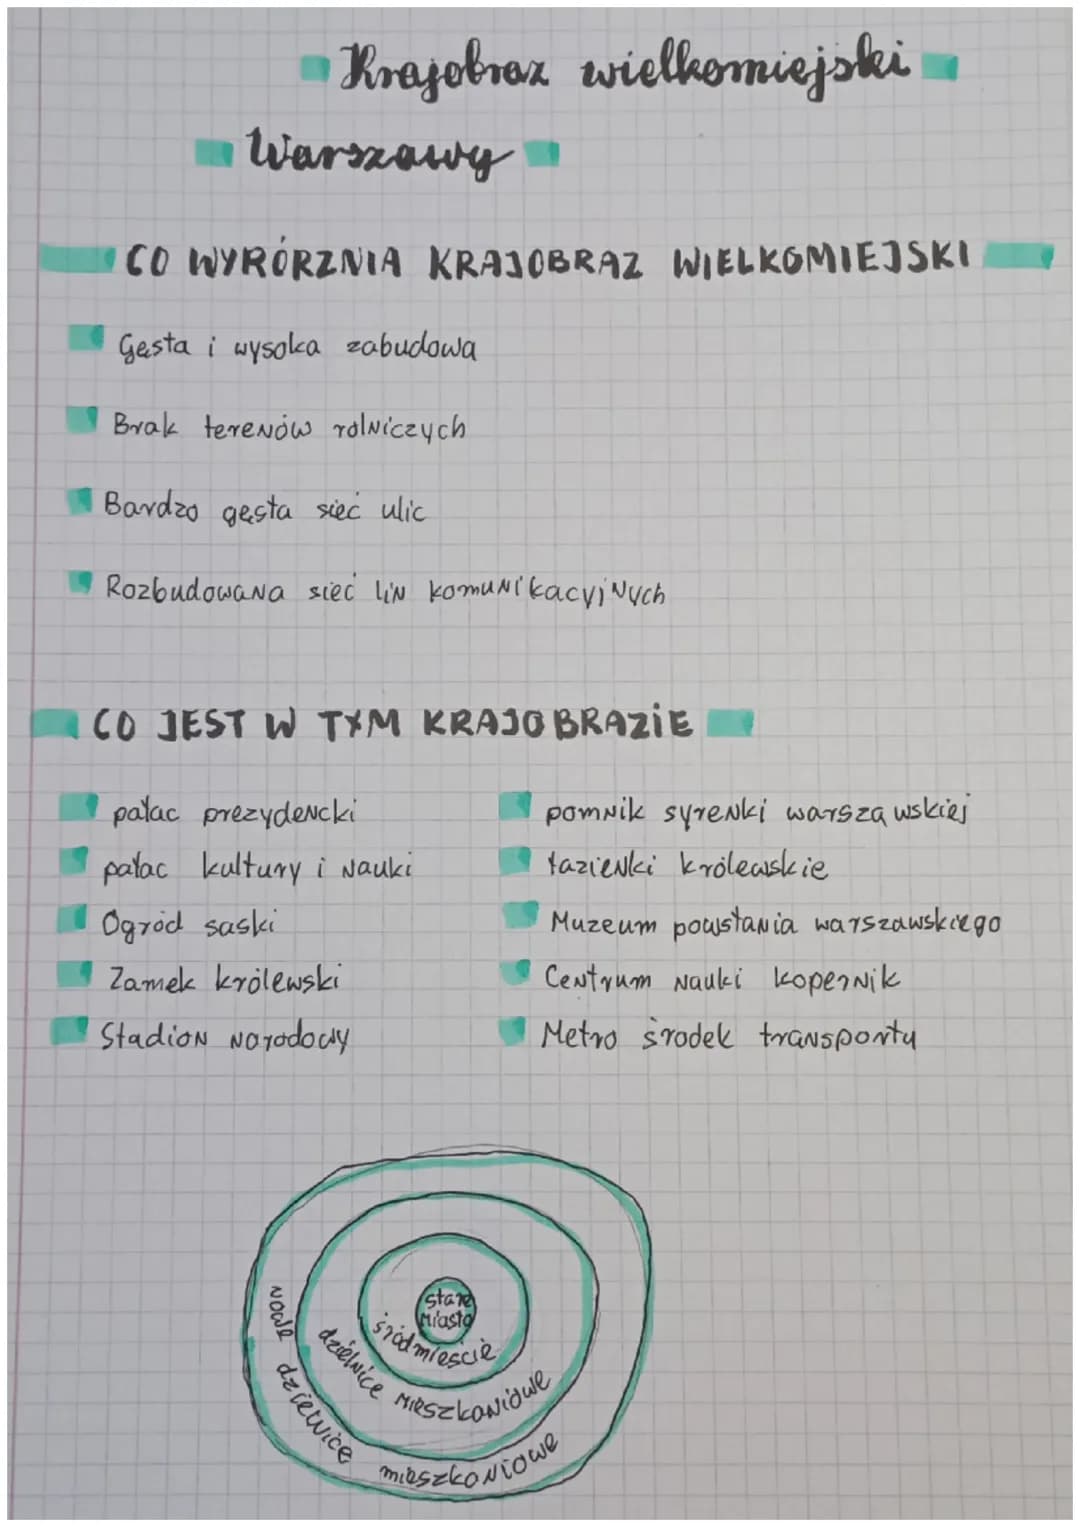 Krajobraz wielkomiejski
Warszawy
CO WYRÓRZNIA KRAJOBRAZ WIELKOMIEJSKI
Gęsta i wysoka zabudowa
Brak terenów rolniczych
Bardzo gęsta sieć ulic
Rozbudowana sieć lin komunikacyjnych
CO JEST W TYM KRAJOBRAZIE
pałac prezydencki
pałac kultury i Nauki
Ogród saski
Zamek królewski
Stadion Narodowy
pomnik syrenki warszawskiej
łazienki królewskie
Muzeum powstania warszawskiego
Centrum Nauki kopernik
Metro środek transportu
stare
miasto
śródmieście
dzielnice mieszkaniowe
nowe dzielnice mieszkaniowe